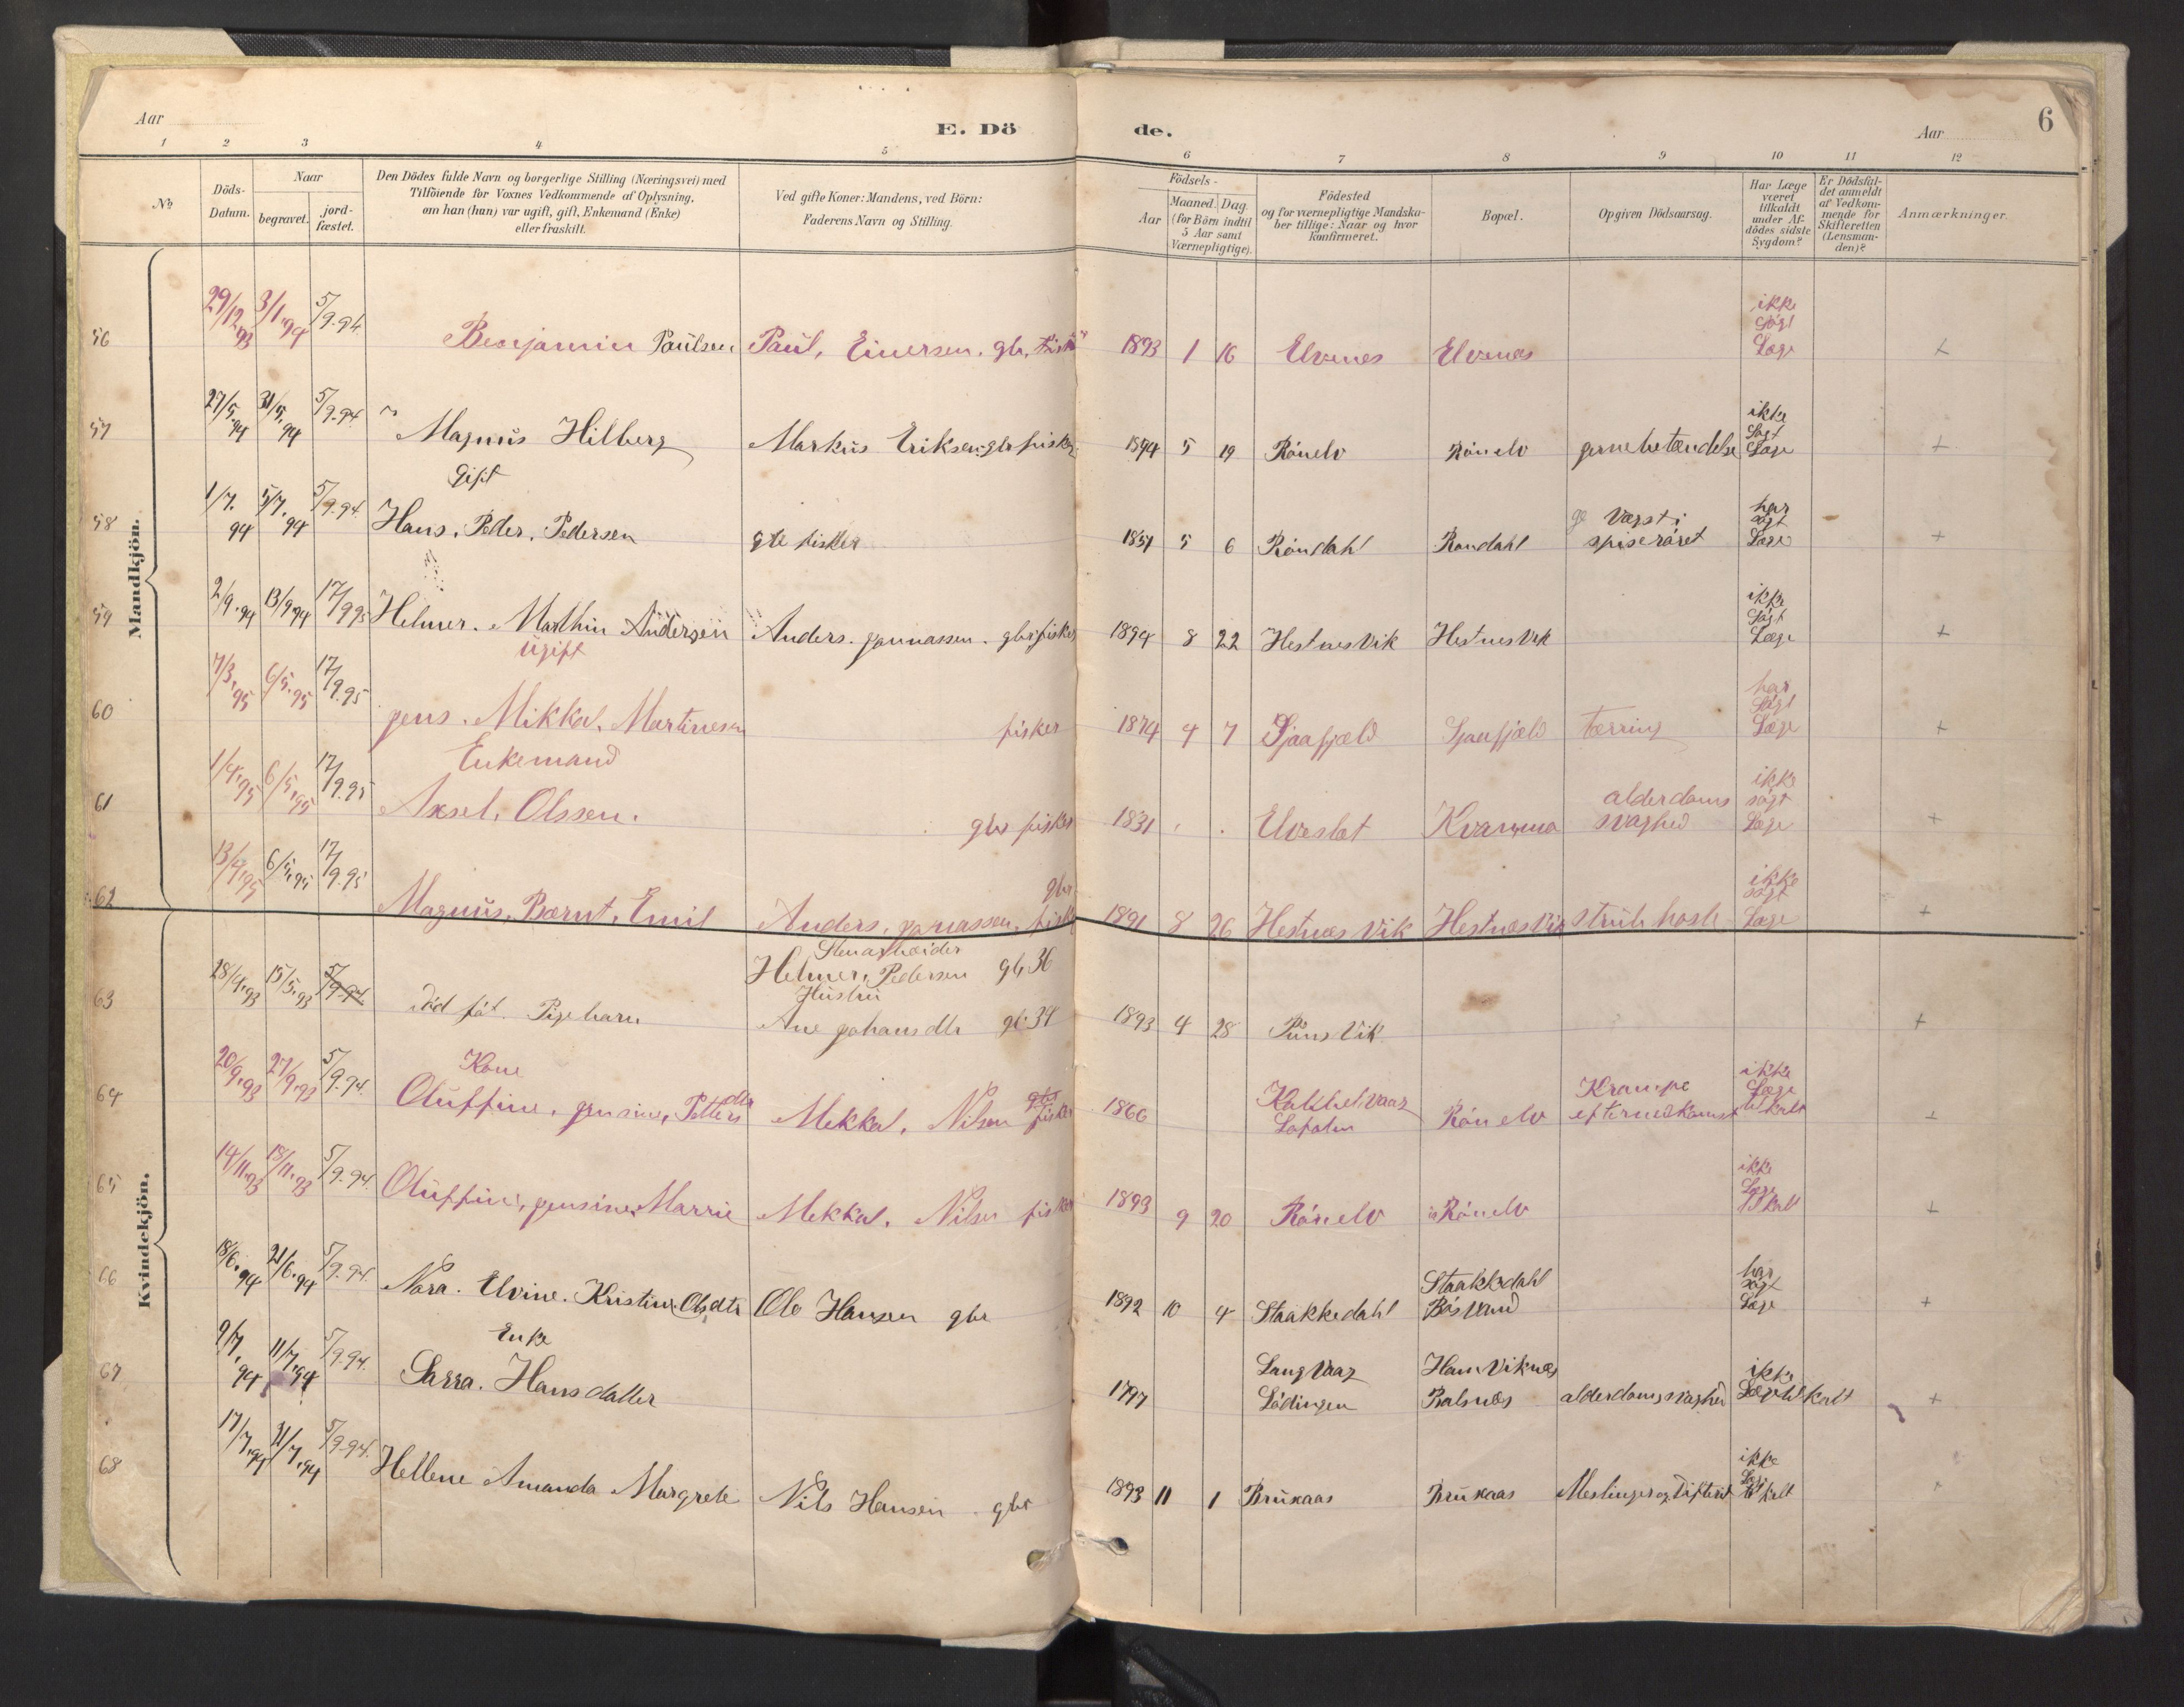 Aar
E. Dö
de.
Aar
6
1 2 3 4 5 6 7 8 9 10 11 12
No.
Döds-Datum.
Naar
begravet.
jord-fæstet.
Den Dödes fulde Navn og borgerlige Stilling (Næringsvei) med
Tilföiende for Voxnes Vedkommende af Oplysning,
om han (hun) var ugift, gift, Enkemand (Enke)
eller fraskilt.
Ved gifte Koner: Mandens, ved Börn:
Faderens Navn og Stilling.
Födsels-
Aar
Maaned. Dag.
(for Börn indtil
5 Aar samt
Værnepligtige).
Födested
og for værnepligtige Mandska-
ber tillige: Naar og hvor
konfirmeret.
Bopæl.
Opgiven Dödsaarsag.
Har Læge
været
tilkaldt
under Af-
dödes sidste
Sygdom?
Er Dödsfal-
det anmeldt
af Vedkom-
mende for
Skifteretten
(Lensman-
den)?
Anmærkninger.
Mandkjön.
56 29/12.93 3/1.94 5/9.94 Benjamin Paulsen Paul, Einersen. gbr, fisk 1893 1 16 Elvenes Elvenes ikke Søgt Læge +
57 27/5.94 31/5.94 5/9.94. Magnus Hilberg Markus Eriksen gbr fisker 1894 5 19 Rönelv Rönelv jernebetændelse ikke Søgt Læge +
Gift
58 1/7.94 5/7.94 5/9.94. Hans, Peder, Pedersen gbr fisker 1851 5 6 Röndahl Rondahl Vægst i spiseröret har søgt Læge +
59 2/9.94 13/9.94 17/9.95 Helmer. Marthin Andersen Anders. jonnassen. gbr, fisker 1894 8 22 Hestnesvik Hestnesvik ikke Søgt Læge +
ugift
60 7/3.95 6/5.95 17/9.95 jens. Mikkal. Martinesen fisker 1874 4 7 Sjaafjæld Sjaafjæld tærring har Søgt Læge +
Enkemand
61 1/4.95 6/5.95 17/9.95 Aksel, Olssen. gbr fisker 1831 Elveslet Kvanmo alderdoms svaghed ikke søgt Læge +
62 13/4.95 6/5.95 17/9.95 Magnus, Bærnt, Emil Anders, jonassen, gbr fisk 1891 8 26 Hestnæsvik Hestnæsvik strubhoste ikke søgt Læge +
Kvindekjön.
Stenarbeider
63 28/4.93 15/5.93 5/9.94. död föt. Pigebarn Helmer, Pedersen gb, 36
Hustru
Ane johansdtr gb. 34 1893 4 28 Pünsvik +
Kone
64 20/9.93 27/9.93 5/9.94. Oluffine, jensine, Petters dtr Mekkal, Nilsen gbr fisker 1866 Kakkelvaag Lofoten Rönelv Krampe efter nedkomst ikke Læge til kalt +
65 14/11.93 18/11.93 5/9.94. Oluffine, jensine, Marrie Mekkal. Nilsen fisker 1893 9 20 Rönelv Rönelv ikke Læge til kalt +
66 18/6.94 21/6.94 5/9.94. Nora. Elvine. Kristine Olsdtr Ole Hansen gbr 1892 10 4 Staakkedahl Staakkedahl Bösvand har søgt Læge +
Enke
67 9/7.94 11/7.94 5/9.94. Sarra. Hansdatter 1797 Langvaag Lödingen Hamviknæs Balsnæs alderdomssvaghed ikke Læge til kalt +
68 17/7.94 21/7.94 5/9.94. Hellene Amanda Margrete Nils Hansen gbr 1893 11 1 Brukaas Brukaas Meslinger og Difterit ikke Læge til kalt +